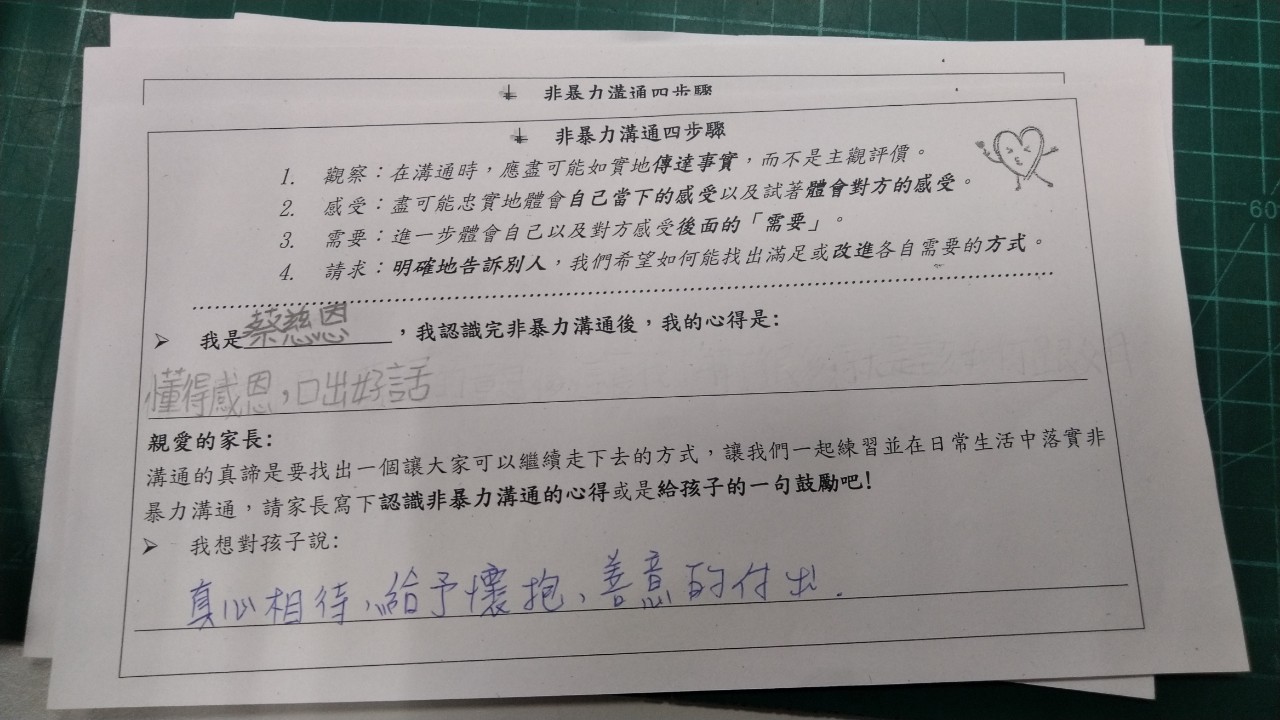 非暴力溝通四步驟
非暴力溝通四步驟
1. 觀察：在溝通時，應盡可能如實地傳達事實，而不是主觀評價。
2. 感受：盡可能忠實地體會自己當下的感受以及試著體會對方的感受。
3. 需要：進一步體會自己以及對方感受後面的「需要」。
4. 請求：明確地告訴別人，我們希望如何能找出滿足或改進各自需要的方式。
➢ 我是蔡慈恩，我認識完非暴力溝通後，我的心得是：
懂得感恩，口出好話
親愛的家長：
溝通的真諦是要找出一個讓大家可以繼續走下去的方式，讓我們一起練習並在日常生活中落實非
暴力溝通，請家長寫下認識非暴力溝通的心得或是給孩子的一句鼓勵吧！
➢ 我想對孩子說：
真心相待、給予懷抱、善意的付出.
60